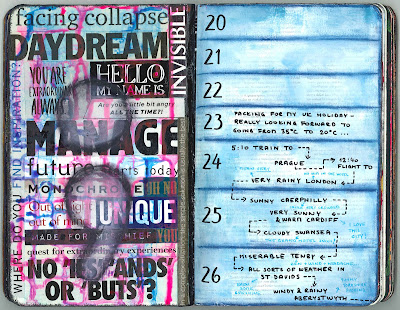 facing collapse
DAYDREAM
INVISIBLE
YOU ARE
EXTRAORDINARY
ALWAYS!
HELLO
MY NAME IS
Are you a little bit angry
ALL THE TIME?!
WHERE DO YOU FIND INSPIRATION?
MANAGE
future starts today
MONOCHROME
OH NO
Out of sight
out of mind
UNIQUE
MADE FOR MISCHIEF
quest for extraordinary experiences
NO 'IFS' 'ANDS'
OR 'BUTS'?
20
21
22
23
PACKING FOR MY UK HOLIDAY -
REALLY LOOKING FORWARD TO
GOING FROM 35°C TO 20°C ...
24
5:10 TRAIN TO
PRAGUE
12:40
FLIGHT TO
VERY RAINY LONDON
25
SUNNY CAERPHILLY
VERY SUNNY
& WARM CARDIFF
CLOUDY SWANSEA
I LOVE
THIS
CITY
26
MISERABLE TENBY
ALL SORTS OF WEATHER IN
ST DAVIDS
WINDY & RAINY
ABERYSTWYTH